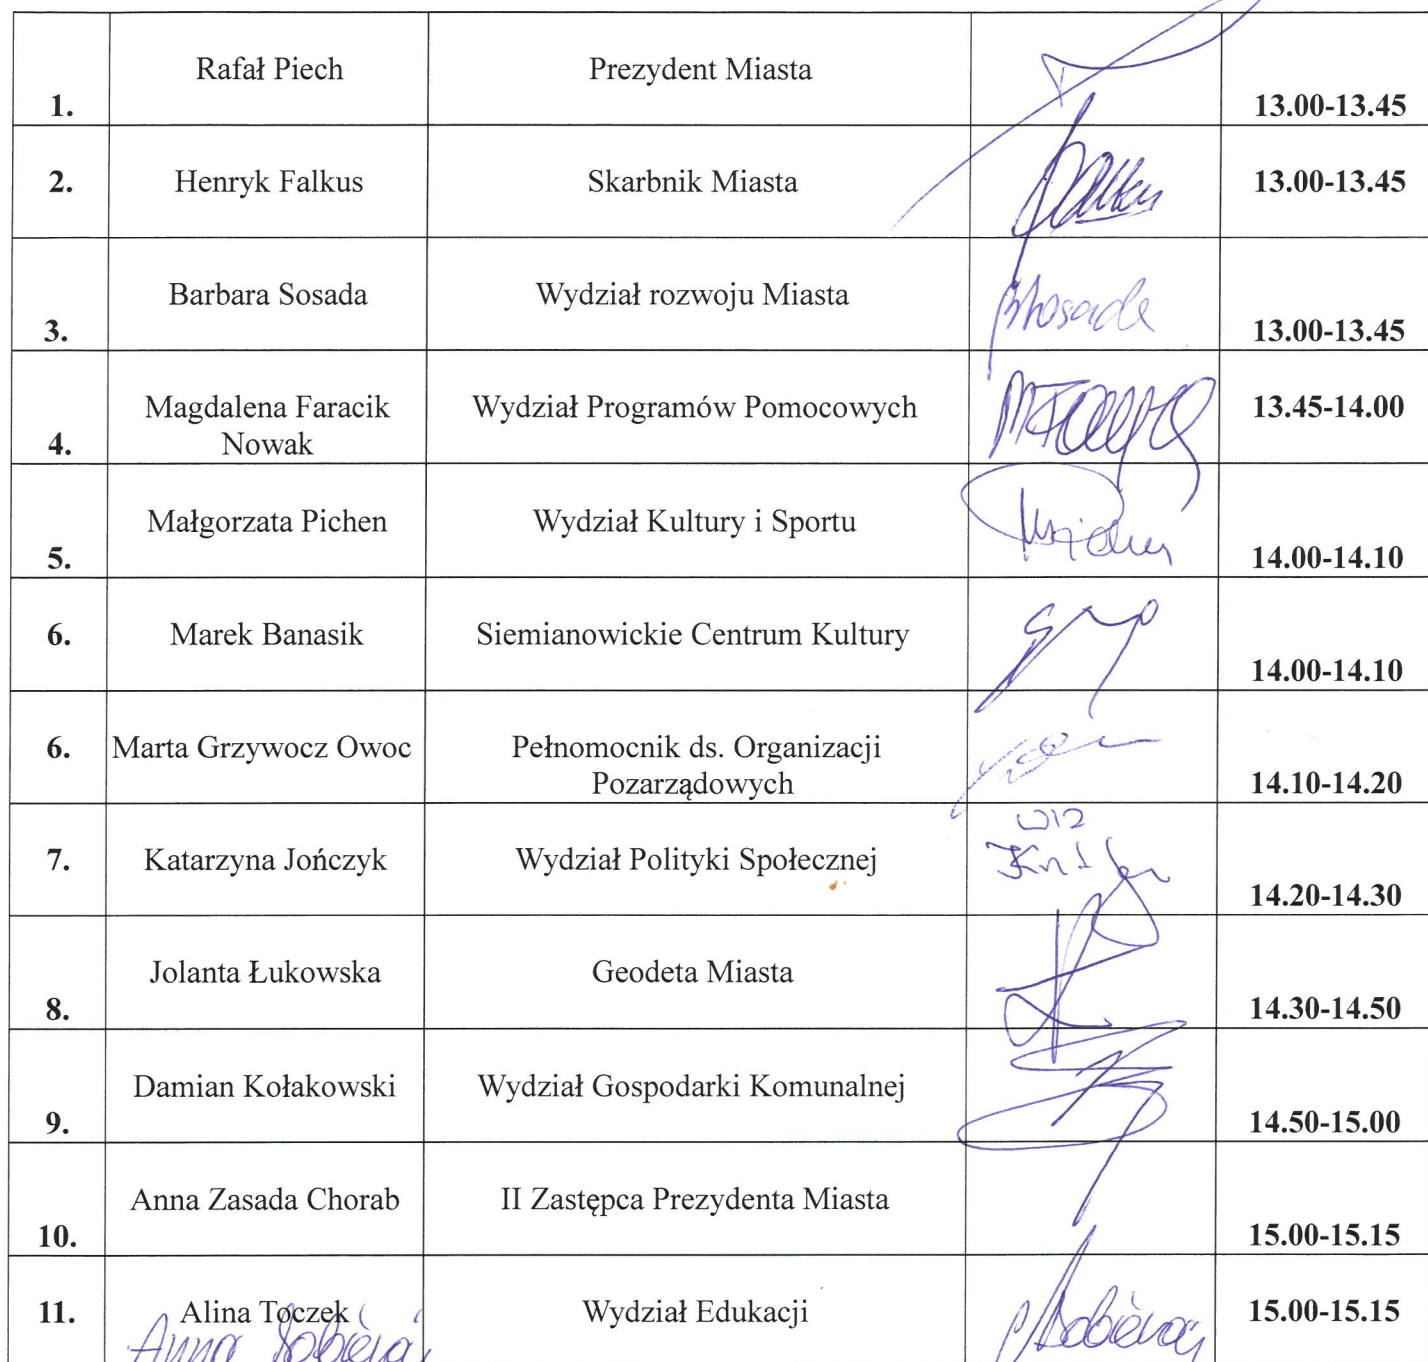 1. Rafał Piech Prezydent Miasta 13.00-13.45
2. Henryk Falkus Skarbnik Miasta 13.00-13.45
3. Barbara Sosada Wydział rozwoju Miasta 13.00-13.45
4. Magdalena Faracik Wydział Programów Pomocowych 13.45-14.00
Nowak
5. Małgorzata Pichen Wydział Kultury i Sportu 14.00-14.10
6. Marek Banasik Siemianowickie Centrum Kultury 14.00-14.10
6. Marta Grzywocz Owoc Pełnomocnik ds. Organizacji
Pozarządowych 14.10-14.20
7. Katarzyna Jończyk Wydział Polityki Społecznej 14.20-14.30
8. Jolanta Łukowska Geodeta Miasta 14.30-14.50
9. Damian Kołakowski Wydział Gospodarki Komunalnej 14.50-15.00
10. Anna Zasada Chorab II Zastępca Prezydenta Miasta 15.00-15.15
11. Alina Toczek Wydział Edukacji 15.00-15.15
Anna